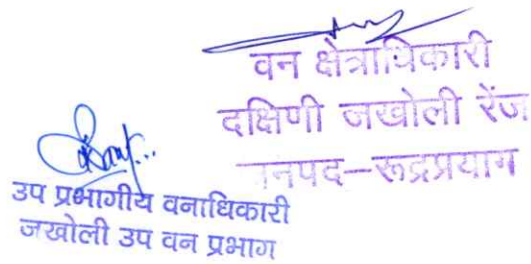 वन क्षेत्राधिकारी
दक्षिणी जखोली रेंज
जनपद—रूद्रप्रयाग
उप प्रभागीय वनाधिकारी
जखोली उप वन प्रभाग